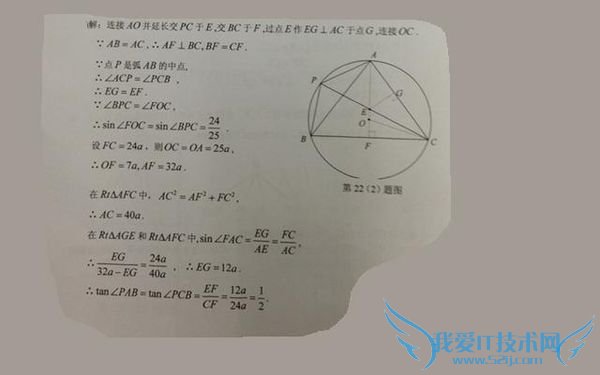 解：连接 AO 并延长交 PC 于 E,交 BC 于 F ,过点 E 作 EG ⊥ AC 于点 G , 连接 OC .
∵ AB = AC , ∴ AF ⊥ BC, BF = CF .
∵点 P 是弧 AB 的中点,
∴∠ACP = ∠PCB ,
∴ EG = EF .
∵∠BPC = ∠FOC ,
∴ sin∠FOC = sin∠BPC = 24/25 .
设 FC = 24a , 则 OC = OA = 25a ,
∴ OF = 7a, AF = 32a .
在 Rt△AFC 中, AC² = AF² + FC² ,
∴ AC = 40a .
在 Rt△AGE 和 Rt△AFC 中, sin∠FAC = EG/AE = FC/AC ,
∴ EG/(32a − EG) = 24a/40a , ∴ EG = 12a .
∴ tan∠PAB = tan∠PCB = EF/CF = 12a/24a = 1/2 .
A
P
G
E
O
B
F
C
第 22 (2) 题图
我爱IT技术网
www.52ij.com